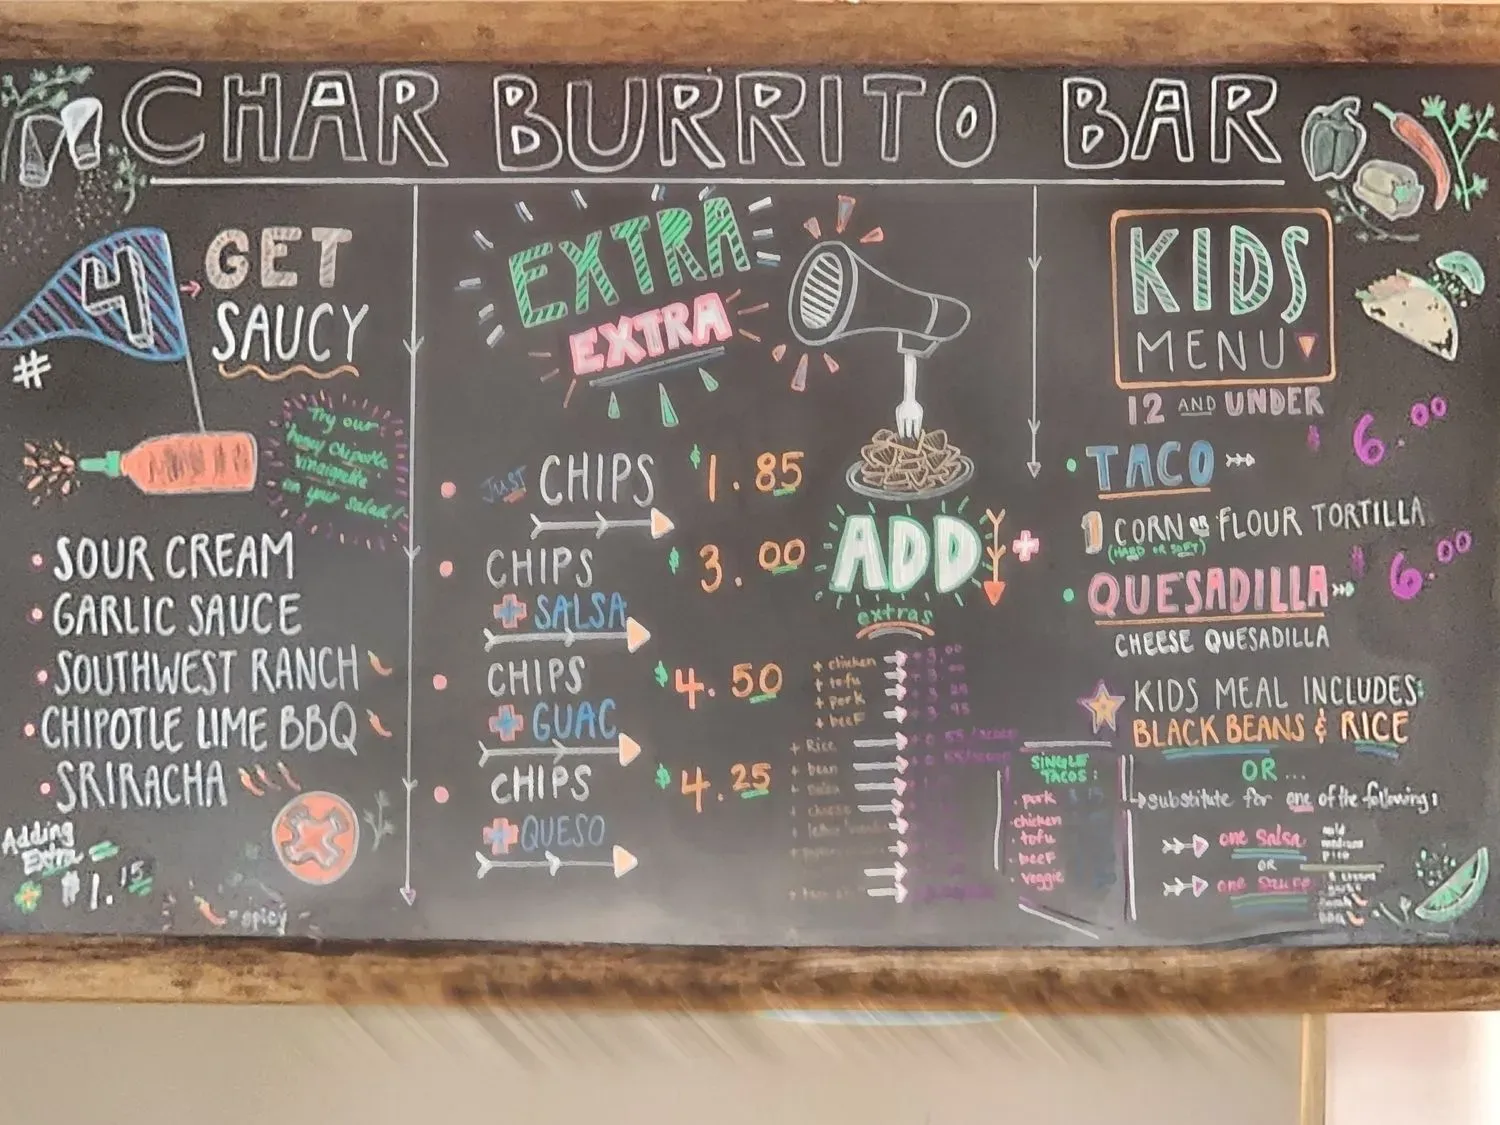 CHAR BURRITO BAR
#4
GET
SAUCY
Try our
honey chipotle
vinaigrette
on your salad!
SOUR CREAM
GARLIC SAUCE
SOUTHWEST RANCH
CHIPOTLE LIME BBQ
SRIRACHA
Adding
Extra
+ $1.15
= spicy
EXTRA
EXTRA
JUST CHIPS $1.85
CHIPS $3.00
+ SALSA
CHIPS $4.50
+ GUAC
CHIPS $4.25
+ QUESO
ADD +
extras
+ chicken + 3.00
+ tofu
+ pork
+ beef
+ Rice
+ bean
SINGLE
TACOS:
pork
chicken
tofu
beef
veggie
KIDS
MENU
12 AND UNDER
TACO $6.00
CORN OR FLOUR TORTILLA
(HARD OR SOFT)
QUESADILLA $6.00
CHEESE QUESADILLA
KIDS MEAL INCLUDES:
BLACK BEANS & RICE
OR...
substitute for one of the following:
one salsa
mild
medium
pico
OR
one sauce
BBQ